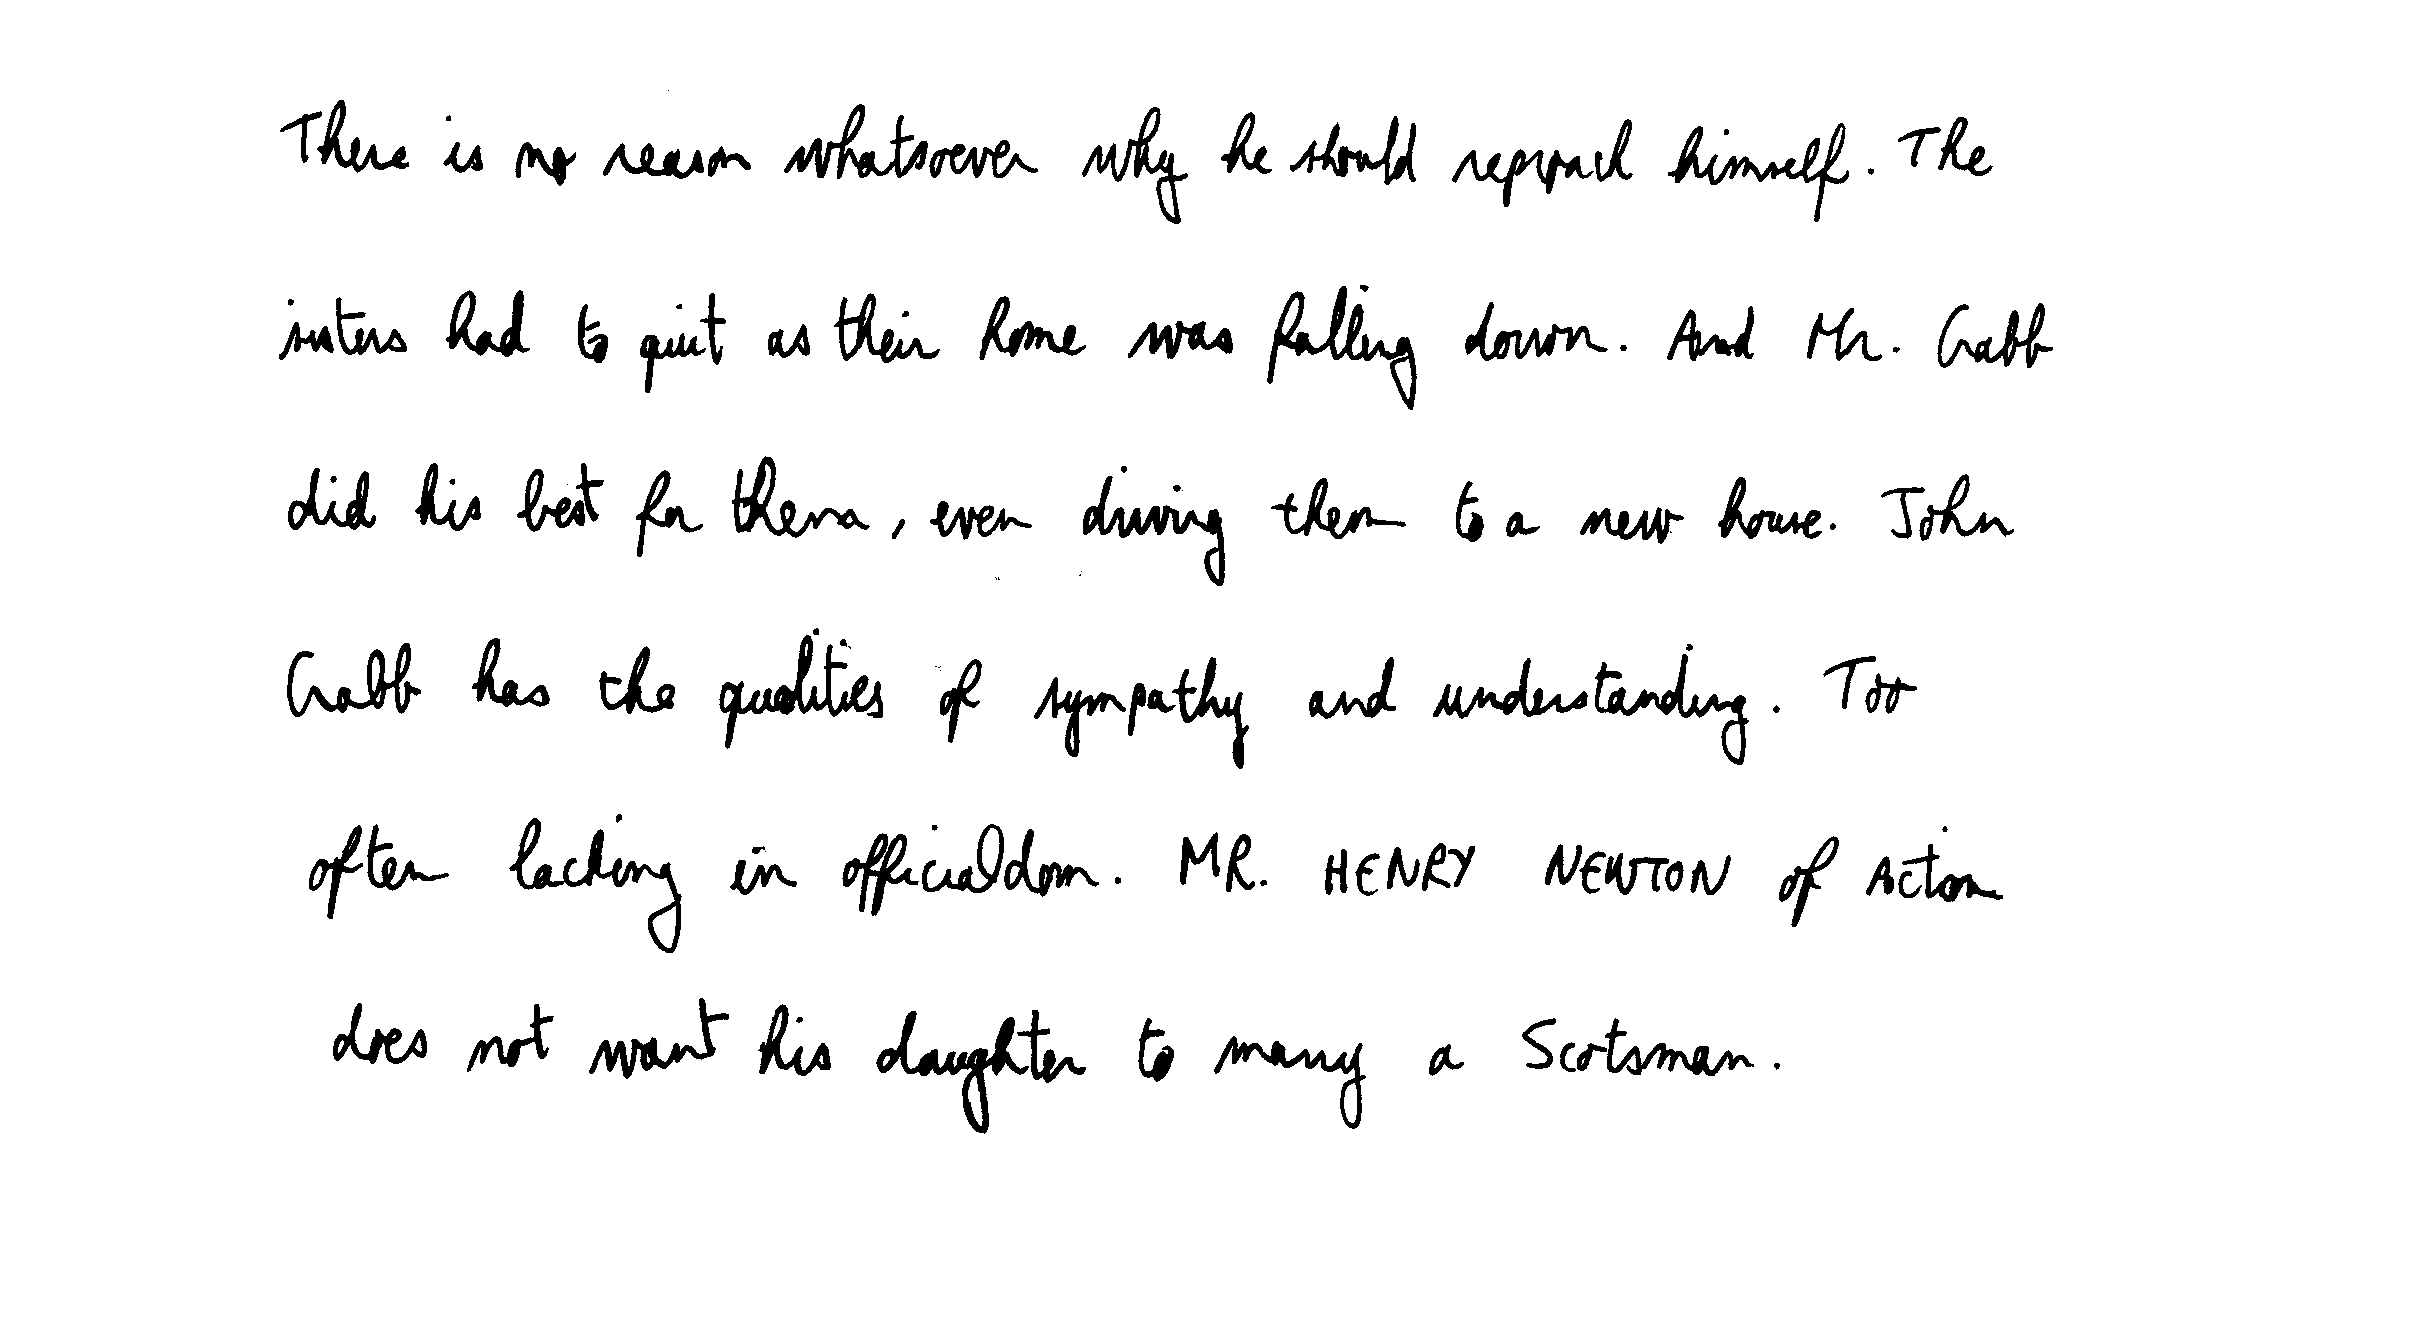 There is no reason whatsoever why he should reproach himself. The
sisters had to quit as their home was falling down. And Mr. Crabb
did his best for them, even driving them to a new house. John
Crabb has the qualities of sympathy and understanding. Too
often lacking in officialdom. MR. HENRY NEWTON of Acton
does not want his daughter to marry a Scotsman.